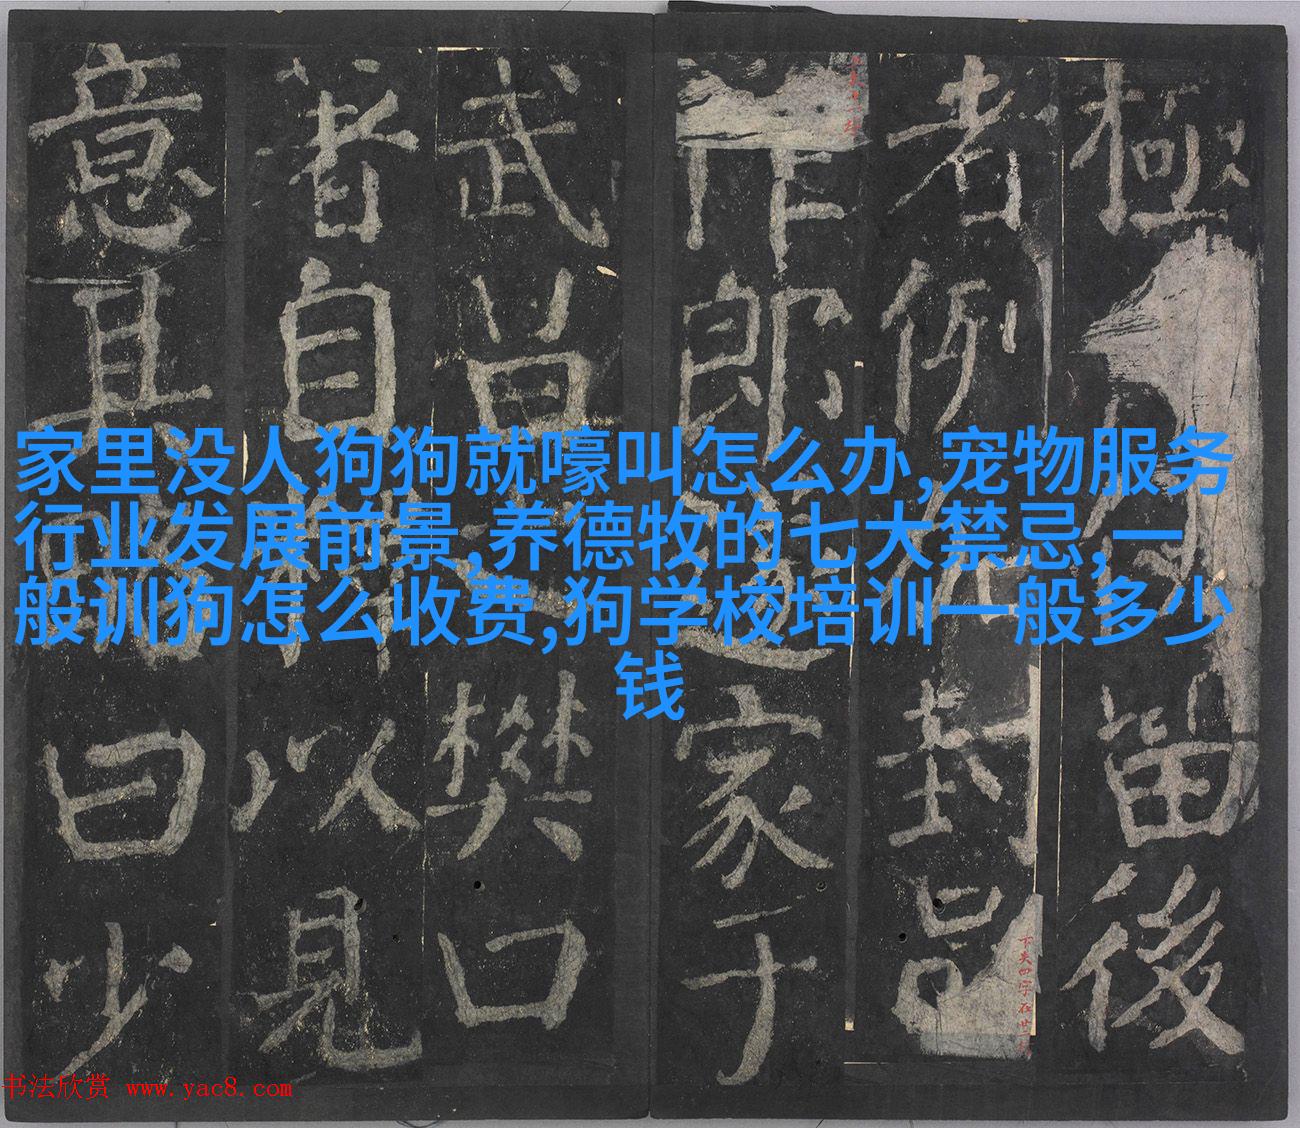 家里没人狗狗就嚎叫怎么办,宠物服务
行业发展前景,养德牧的七大禁忌,一
般训狗怎么收费,狗学校培训一般多少
钱
極
留後
者例
封邑
作郎
家于
武昌
樊口
者自
以見
意其
曰少
下失四字在廿
书法欣赏 www.yac8.com